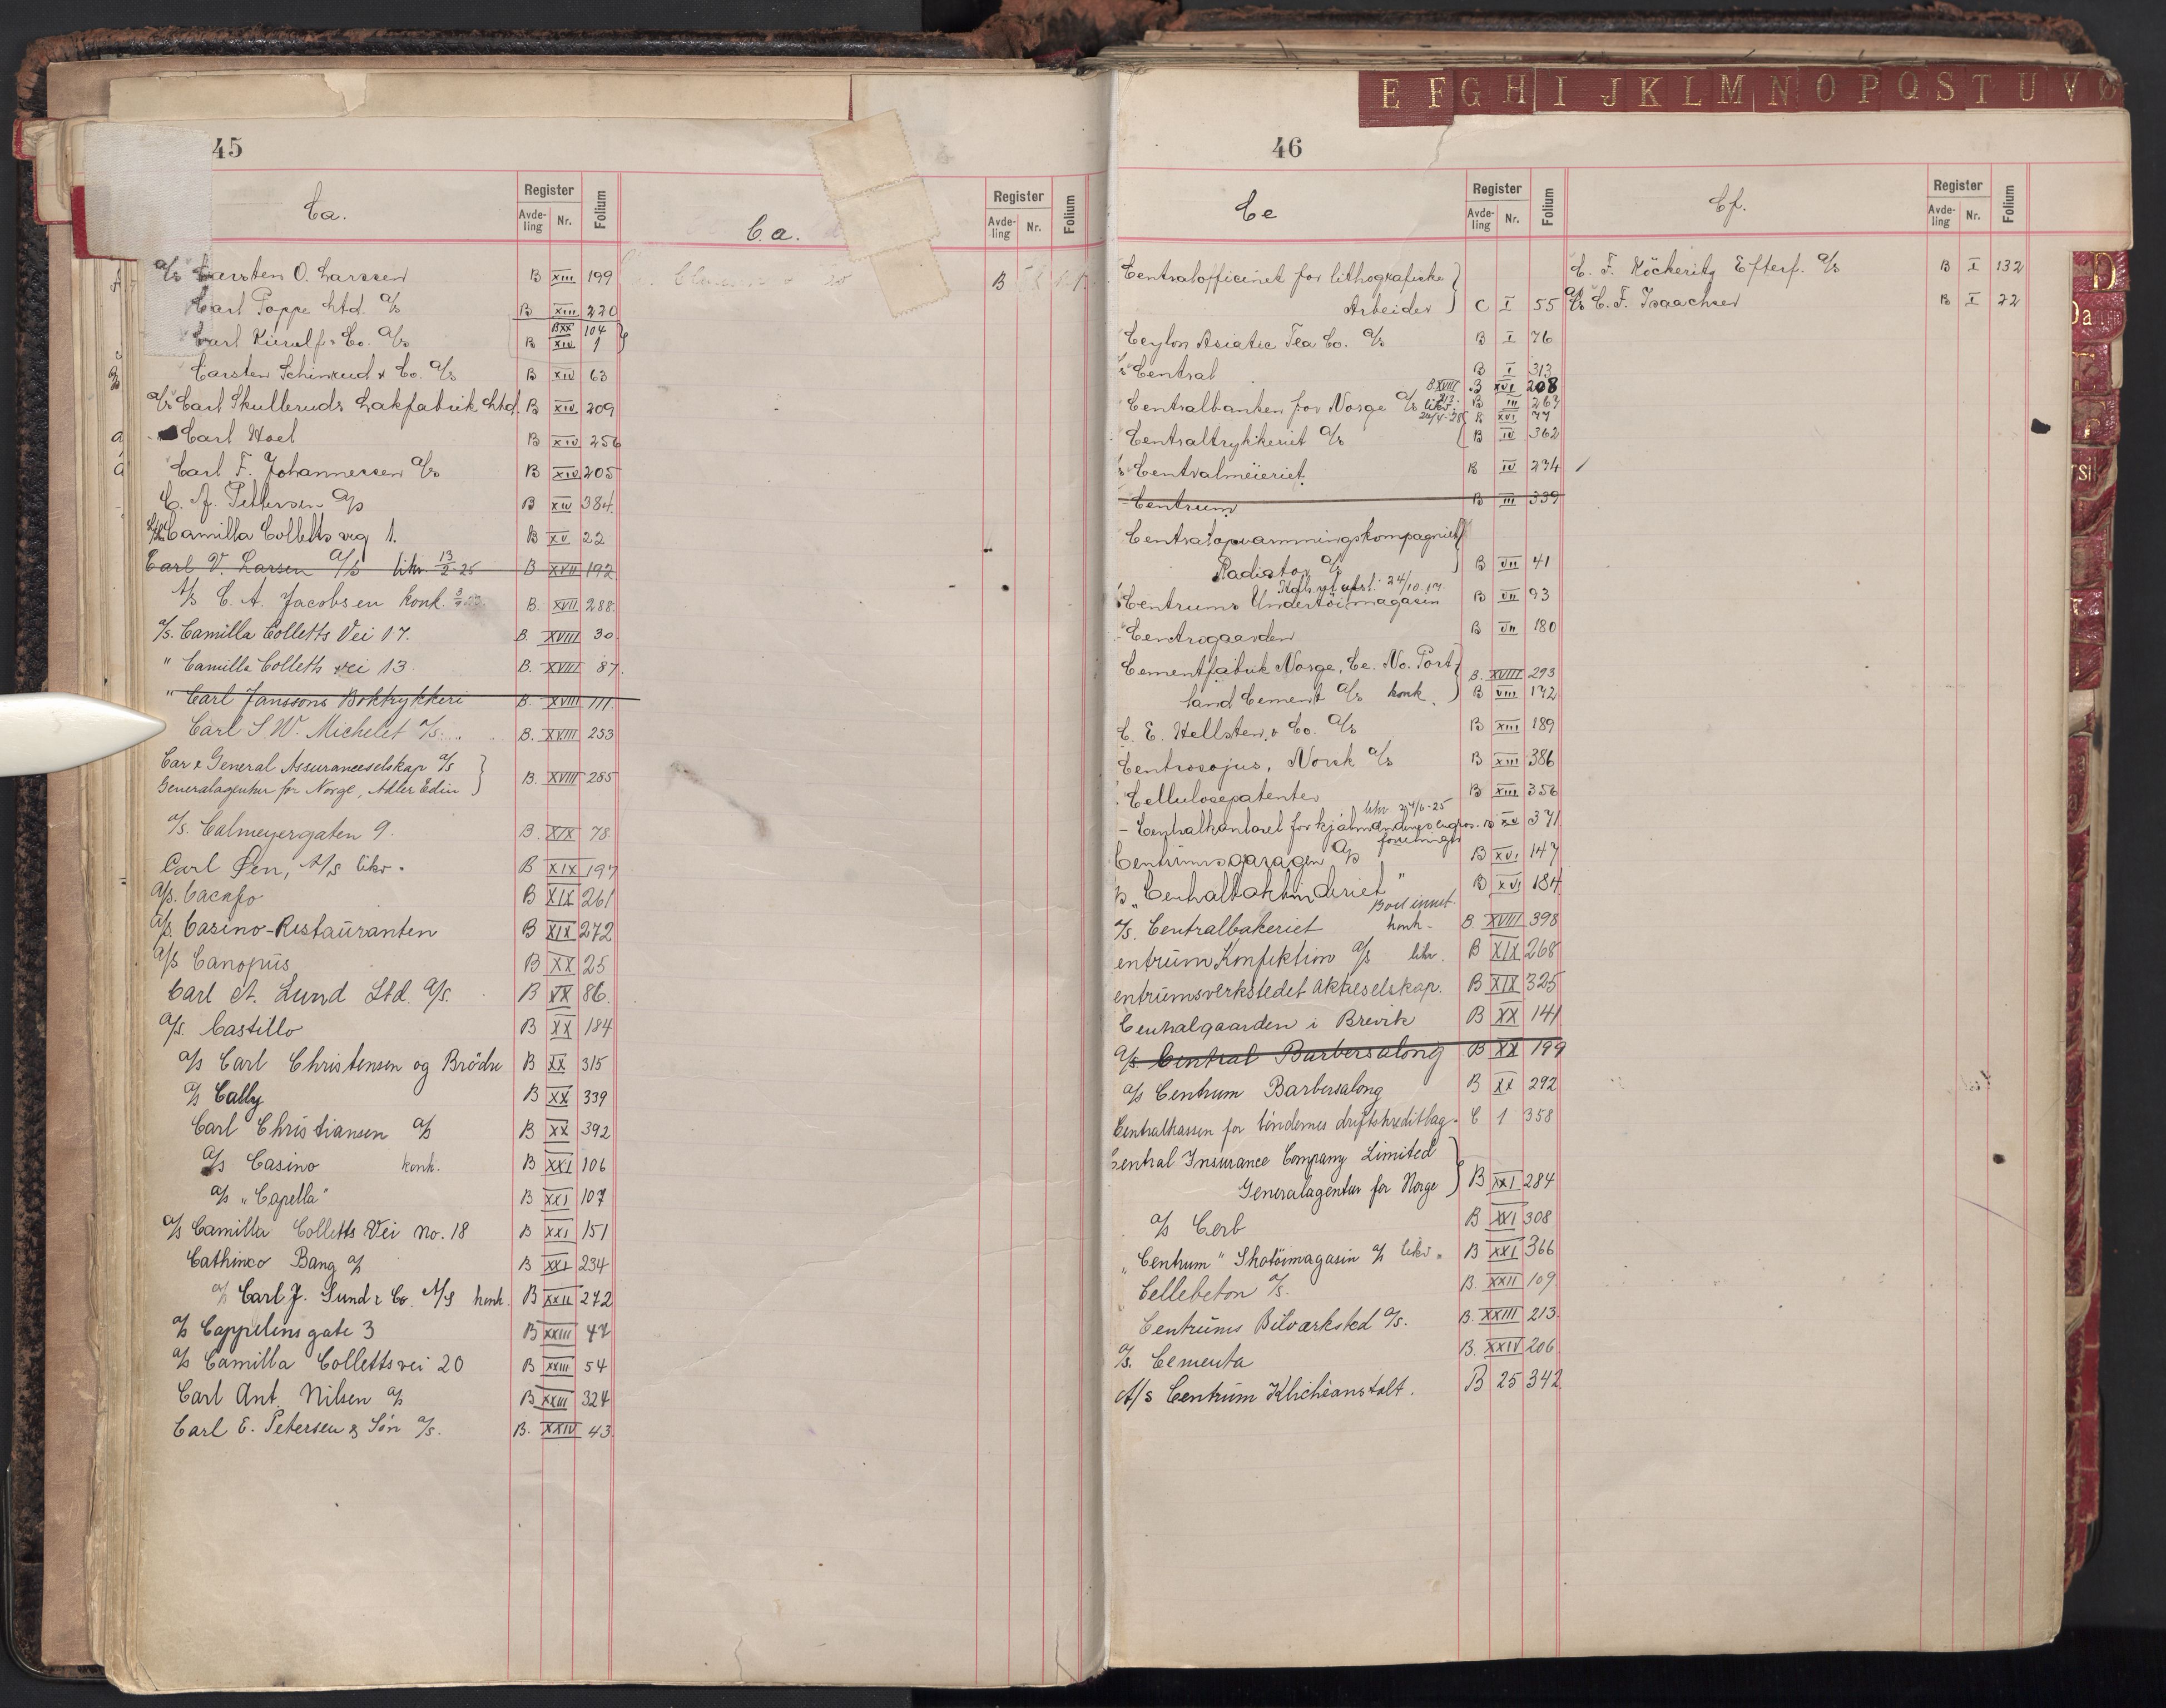 45
Ca.
Register
Avde-
ling
Nr.
Folium
A/s Carsten O. Larssen B XIII 199
Carl Poppe Ltd. A/s B XIII 220
BXX 104
Carl & Co. A/s B XIV 1
Carsten Schinrud & Co. A/s B XIV 63
A/s Carl Skulleruds Lakfabrik Ltd. B XIV 209
Carl Hoel B XIV 256
Carl F. Johannessen A/s B XIV 205
C. A. Pettersen A/s B XIV 384.
Camilla Colletts veg 1. B XV 22
Carl V. Larsen A/s likv. 13/2-25 B XVII 192
A/s C. A. Jacobsen konk. B. XVII 288.
A/s. Camilla Colletts Vei 17. B. XVIII 30
" Camilla Colletts vei 13. B. XVIII 87.
" Carl Janssons Boktrykkeri B. XVIII 111
Carl S. W. Michelet A/s. B. XVIII 253
Car & General Assuranceselskap A/s
Generalagentur for Norge, Adler Edin B. XVIII 285
A/s. Calmeyergaten 9. B. XIX 78
Carl Øen, A/S likv. B XIX 197
A/s. Cacafo B XIX 261
A/s. Casino-Restauranten B XIX 272
A/s Canopus B XX 25
Carl A. Lund Ltd. A/s. B XX 86.
A/s. Castillo B XX 184
A/s Carl Christensen og Brödre B XX 315
A/s Cally B XX 339
Carl Christiansen A/s B XX 392
A/s Casino konk. B XXI 106
A/s "Capella" B XXI 107
A/s Camilla Colletts Vei No. 18 B XXI 151
Cathinco Bang A/s B XXI 234
Carl J. Lund & Co. A/S konk. B XXII 272
A/s Cappelens gate 3 B XXIII 47
A/s Camilla Collettsvei 20 B XXIII 54
Carl Ant. Nilsen A/s B XXIII 324
Carl E. Petersen & Sön A/s. B. XXIV 43
C.a.
Register
Avde-
ling
Nr.
Folium
B
E F G H I J K L M N O P Q S T U V
46
Ce
Register
Avde-
ling
Nr.
Folium
Centralofficinet for lithografiske
Arbeider C I 55
Ceylon Asiatic Tea Co. A/s B I 76
Central B I 313
B XVIII 213. B XVI 208
Centralbanken for Norge A/s likv. B III 267
24/4-28 B XVI 77
Centraltrykkeriet A/s B IV 362
Centralmeieriet. B IV 234
Centrum B III 339
Centralopvarmningskompagniet
Radiator A/s B VII 41
24/10.17.
Centrums Undertöimagasin B VII 93
Centrogaarden B VII 180
Cementfabrik Norge, Ce. No. Port- B. XVIII 293
land Cement A/s konk. B VIII 172
C. E. Hellsten & Co. A/s B XIII 189
Centrosojus, Norsk A/s B XIII 386
Cellulosepatenter B XIII 356
likv 24/6-25
- Centralkontoret for kjølmandnes engros- B XV 371
forretninger
Centrumsgaragen A/s B XVI 147
"Centralbokbinderiet" B XVI 184
Bo el innst.
A/s. Centralbakeriet konk. B. XVIII 398
entrum Konfektion A/s likv. B XIX 268
entrumsverkstedet Aktieselskap. B XIX 325
Centralgaarden i Brevik B XX 141
A/s. Central Barbersalong B XX 199
A/s Centrum Barbersalong B XX 292
Centralkassen for böndernes driftskreditlag. C 1 358
Central Insurance Company Limited
Generalagentur for Norge B XXI 284
A/s Cerb B XXI 308
"Centrum" Skotöimagasin A/s likv. B XXI 366
Cellebeton A/s. B. XXII 109
Centrums Bilværksted A/s. B. XXIII 213.
A/s. Cementa B. XXIV 206
A/s Centrum Klichéanstalt. B 25 342
Cf.
Register
Avde-
ling
Nr.
Folium
C. F. Köckeritz Efterf. A/s B I 132
A/s C. F. Isaachsen B I 22
D